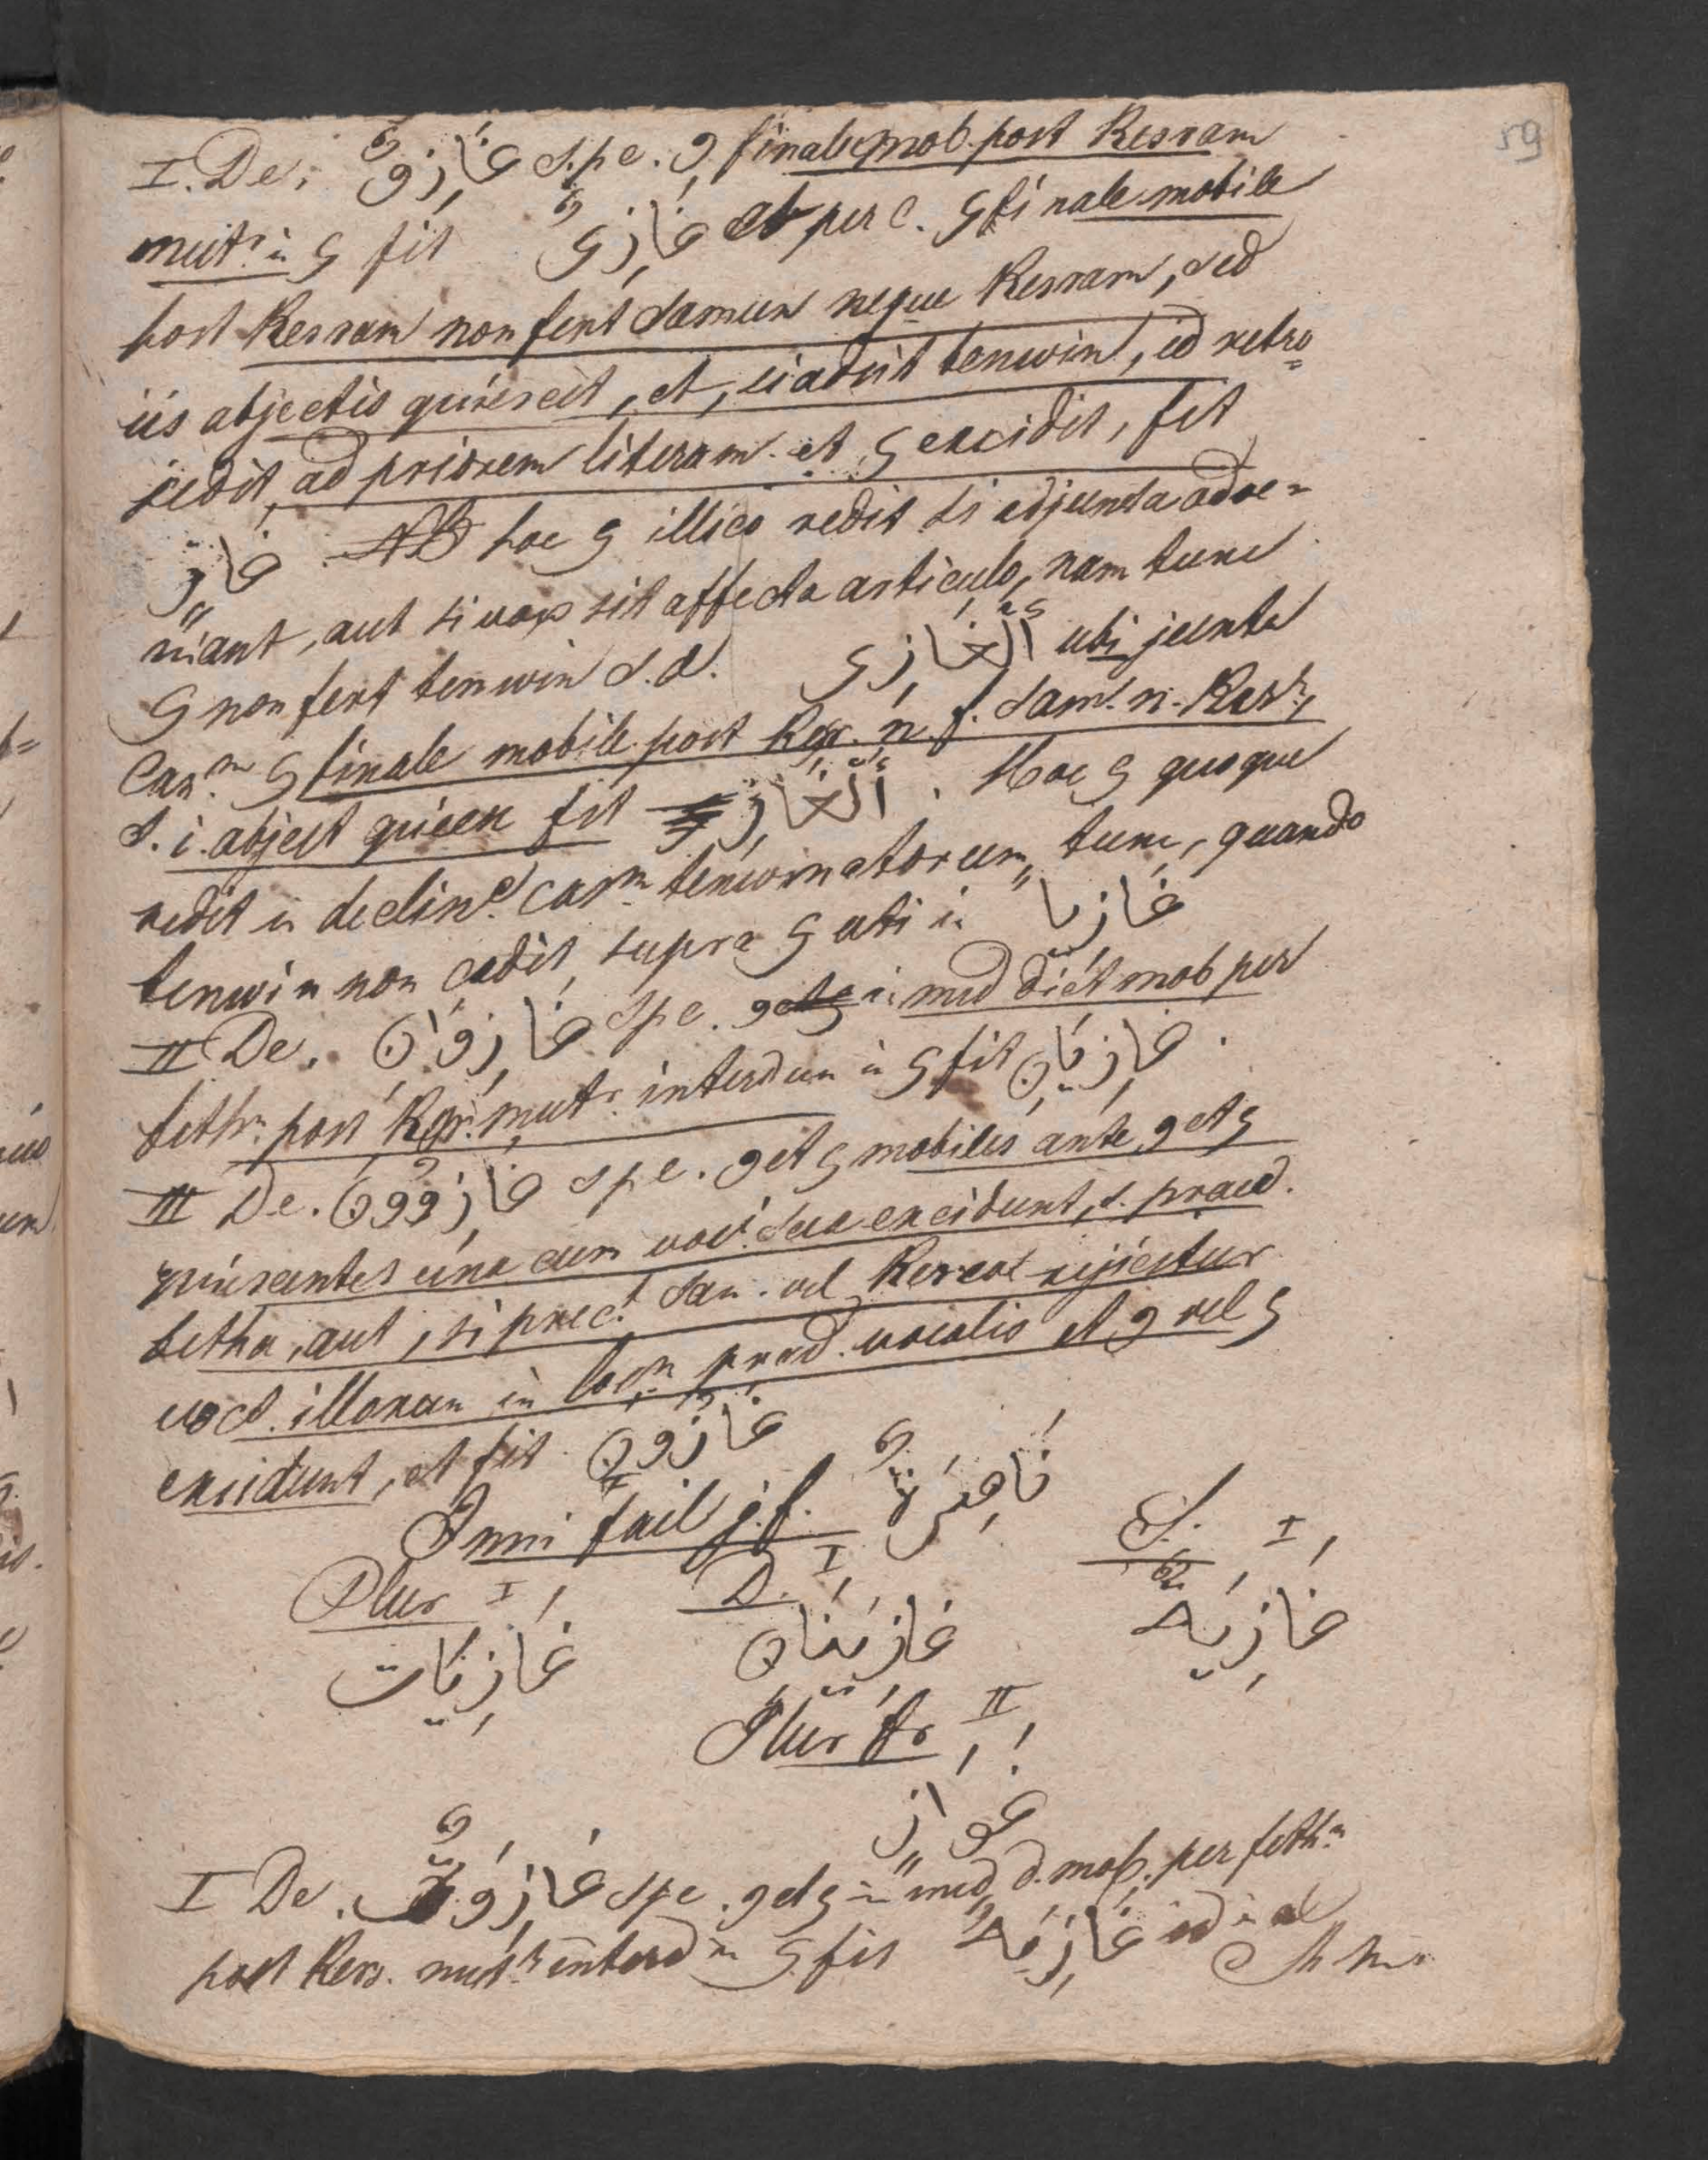 59
I. De. غَازِوٌ s. p. c. و finale mob. post Kesram
mutr in ی fit غَازِیٌ et per c. ی finale mobile
post Kesram non fert damun neque Kesram, sed
iis abjectis quiescit, et, si adsit tenwin, id retro=
cedit, ad priorem literam et ی excidit, fit
غازٍ NB hoc ی illico redit si adjuncta adve=
niant, aut si vox sit affecta articulo, nam tunc
ی non fert tenwin s. d. الغَازِی ubi juxta
Can.m ی finale mobile post Kesr. n. f. dam. n. Kesr.,
s. i. abject quiesc fit الْغَازِ . Hoc ی quoque
redit in decline casm tenwinatorum, tunc, quando
tenwin non cadit supra ی uti in غازیًا
II De. غَازِوَانِ s p c. و in med dict mob per
feth. post Kesr. mutr. interdum in ی fit غَازِیَانِ .
III De. غَازِوُونَ s p c. و et ی mobiles ante و et ی
quiescentes una cum voc. sua excidunt, s. praed.
fetha, aut, si prec.t dam. vel Kesra rejicitur
voc. illorum in locm praed. vocalis et و vel ی
excidunt, et fit غَازُونَ
Ismi fail g. f. نَاصِرَةٌ
Plur I D. I S. I
غَازِیَات غَازِیَتَانِ غَازِیَةٌ
Plur fr II
غَوَازٍ
I De. غَازِوَةٌ s p c. و et ی in med d. mob. per feth.m
post Kesr. mutr interd in ی fit غَازِیَةٌ id in al